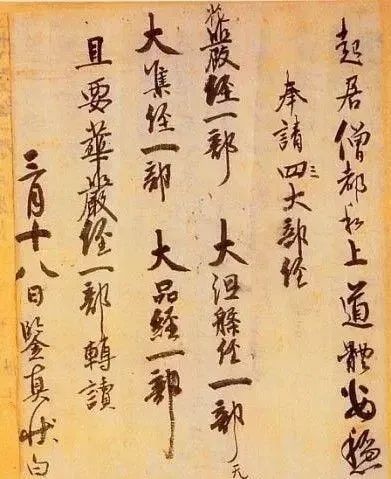 起居僧都和上道體安穩
奉請四三大部經
嚴經一部 大涅槃經一部 无
大集經一部 大品經一部
且要華嚴經一部轉讀
三月十八日鑒真狀白